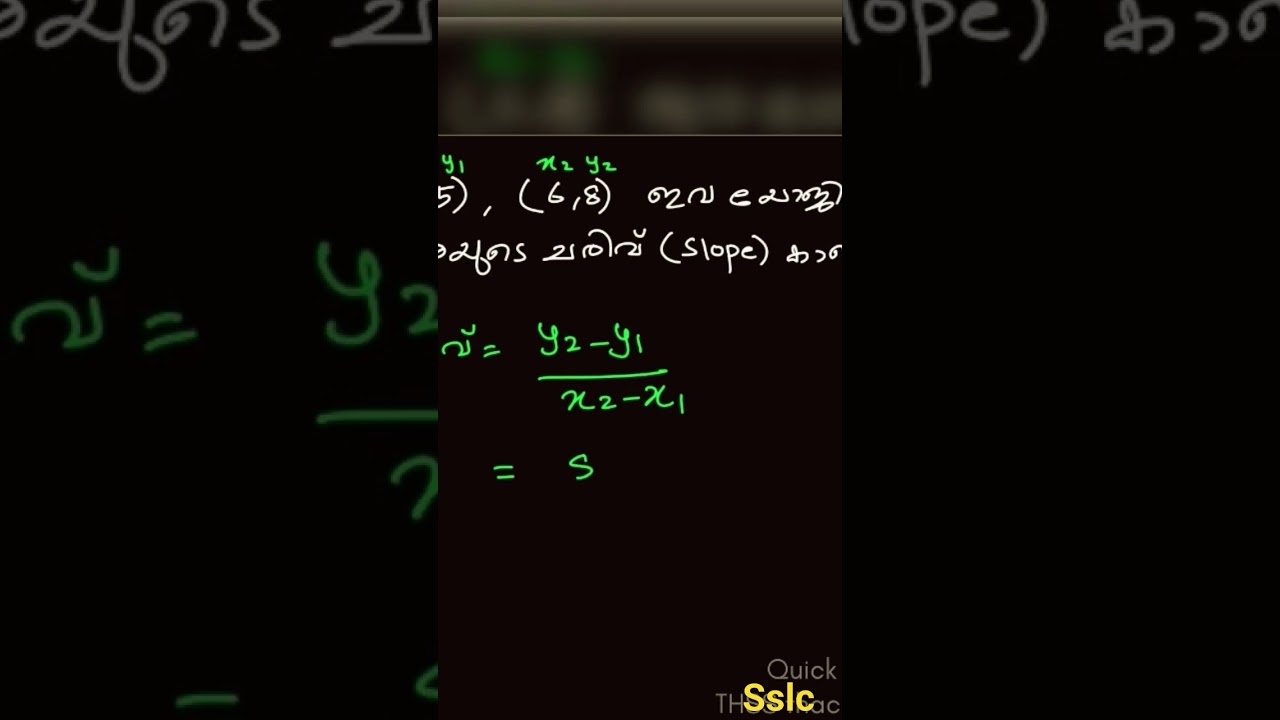 y1 x2 y2
5), (6,8) ഇവ യോജി
യുടെ ചരിവ് (slope) കാണ
വ് = y2-y1
x2-x1
= S
Quick
Sslc